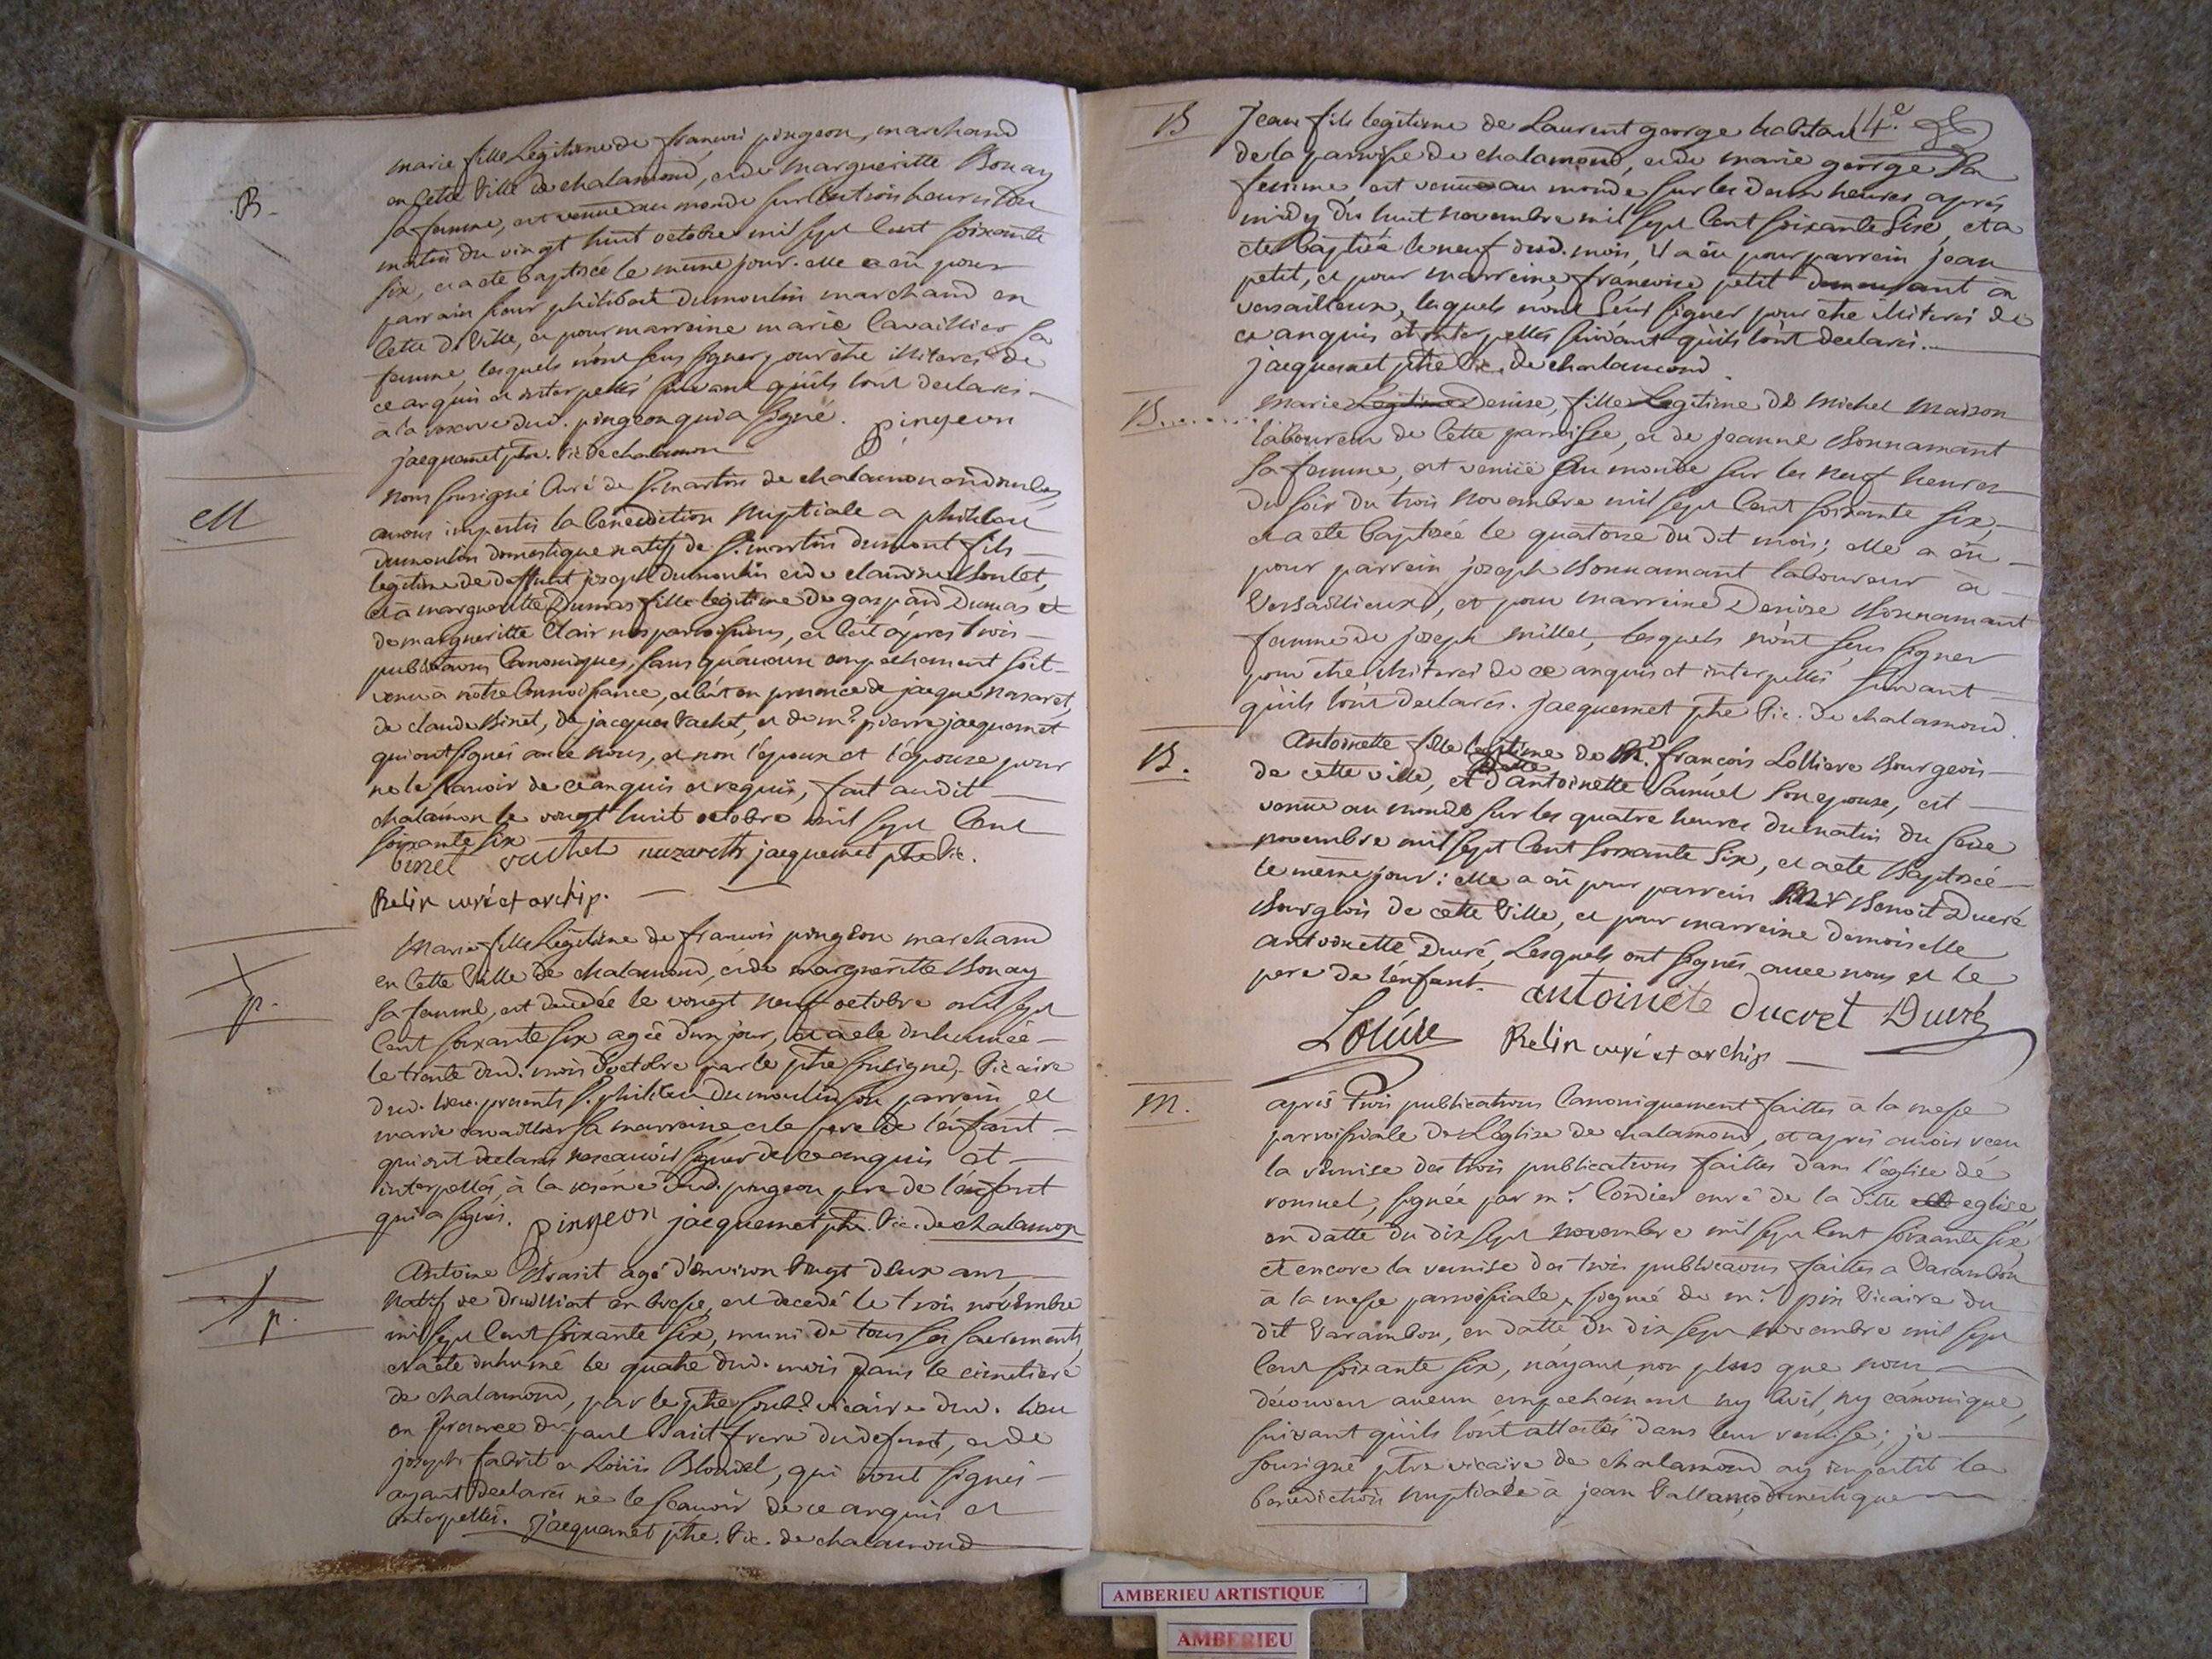 B.
marie fille Legitime de françois pingeon, marchand
en cette Ville de chalamond, et de margueritte Bonay
sa femme, est venue au monde sur les trois heures du
matin du vingt huit octobre mil sept cent soixante
six, et a ete baptisée le meme jour. elle a eu pour
parrain sieur philibert dumoulin marchand en
cette de Ville, et pour marraine marie Cavaillier sa
femme, lesquels n'ont seus signer, pour être illiterés de
ce anquis et interpellés suivant qu'ils l'ont declarés
à la reserve dud. pingeon qui a signé. pingeon
jacquemet ptre. Vic. de chalamon
M
nous sousigné Curé de St. martin de chalamon en dombes,
avons imparti la benediction Nuptiale a philibert
dumoulin domestique natif de St. martin dumont fils
legitime de deffunt joseph dumoulin et de claudine Boulet,
et à margueritte Dumas fille legitime de gaspard Dumas et
de margueritte Clair nos paroissiens, et ce après trois
publications Canoniques, sans qu'aucun empechement soit
venu à notre Connoissance, et ce en presence de jacque nazaret,
de claude Binet, de jacques Vachet, et de mr. pierre jacquemet
qui ont signés avec nous, et non l'epoux et l'épouse pour
ne le sçavoir de ce anquis et requis, fait au dit
chalamon le vingt huit octobre mil sept Cent
soixante six
binet vachet nazareth jacquemet ptre Vic.
Relin curé et archip.
p.
Marie fille Légitime de francois pingeon marchand
en cette Ville de chalamond, et de margueritte Bonay
sa femme, est decedée le vingt neuf octobre mil sept
Cent soixante six agée d'un jour, et a ete inhumée
le trente dud. mois d'octobre par le ptre sousigné, Vicaire
dud. lieu. presents s. philibert Dumoulin son parrain, et
marie cavaillier sa marraine, et le pere de l'enfant
qui ont declarés ne scavoir signer de ce anquis et
interpellés, à la reserve dud. pingeon pere de l'enfant
qui a signé. pingeon jacquemet ptre. Vic. de chalamon
p.
Antoine Brasit agé d'environ Vingt deux ans,
natif de Druilliat en bresse, est decedé le trois novembre
mil sept cent soixante six, muni de tous ses sacrements,
et a ete inhumé le quatre dud. mois dans le cimetiere
de chalamond, par le ptre sous.é vicaire dud. lieu
en presence de paul frere du defunt, et de
joseph fabrit et Loüis Blondel, qui n'ont signés
ayant declarés ne le scavoir de ce anquis et
interpellés. jacquemet ptre. Vic. de chalamond
4.e
B
Jean fils legitime de Laurent george habitant
de la paroisse de chalamond, et de marie george sa
femme est venue au monde sur les deux heures après
midy du huit novembre mil sept Cent soixante six, et a
ete baptisé le neuf dud. mois, il a eu pour parrein jean
petit, et pour marreine francoise petit demeurant à
versailleux, lesquels n'ont seus signer pour être illiterés de
ce anquis et interpellés suivant qu'ils l'ont declarés.
jacquemet ptre Vic. de chalamond
B.
marie Legitime Denise, fille Legitime de michel maison
laboureur de cette paroisse, et de jeanne Bonnamant
sa femme, est venüe au monde sur les neuf heures
du soir du trois novembre mil sept Cent soixante six,
et a ete baptisée le quatorze du dit mois; elle a eu
pour parrein joseph Bonnamant laboureur à
Versaillieux, et pour marreine Denise Bonnamant
femme de joseph millet, lesquels n'ont seus signer
pour être illiterés de ce anquis et interpellés suivant
qu'ils l'ont declarés. jacquemet ptre Vic. de chalamond.
B.
Antoinette fille legitime de Mr. françois Lolliere Bourgeois
de cette ville, et d'antoinette Samüel son epouse, est
venue au monde sur les quatre heures du matin du seize
novembre mil sept Cent soixante six, et a ete Baptisée
le meme jour: elle a eu pour parrein Mr Benoit Ducré
Bourgeois de cette Ville, et pour marreine demoiselle
antoinette Ducré, Lesquels ont signés avec nous et le
pere de l'enfant. antoinete ducret Ducré
Loliere Relin curé et archip
M.
après trois publications Canoniquement faittes à la messe
paroissiale de L'église de chalamond, et après avoir receu
la remise des trois publications faittes dans l'église de
ronsuel, signée par mr. Cordier curé de la ditte eglise,
en datte du dix sept novembre mil sept cent soixante six,
et encore la remise des trois publications faittes a Varambon
à la messe paroissiale, signée de mr. pin Vicaire du
dit Varambon, en datte du dix sept novembre mil sept
cent soixante six, n'ayant non plus que nous
découvert aucun empechement ny Civil, ny canonique,
suivant qu'ils l'ont attestés dans leur remise; je
sousigné ptre vicaire de chalamond ay imparti la
benediction nuptiale à jean Vallanr domestique
AMBERIEU ARTISTIQUE
AMBERIEU